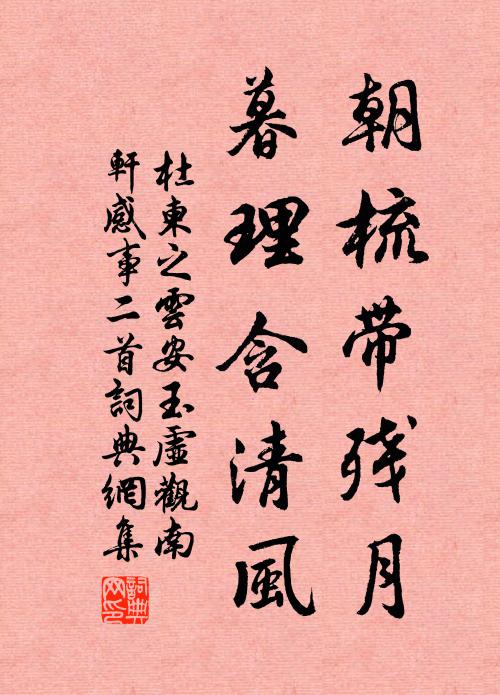 朝梳带残月
暮理含清風
杜東之雲安玉虛觀南
軒感事二首詞典網集
詞典网印